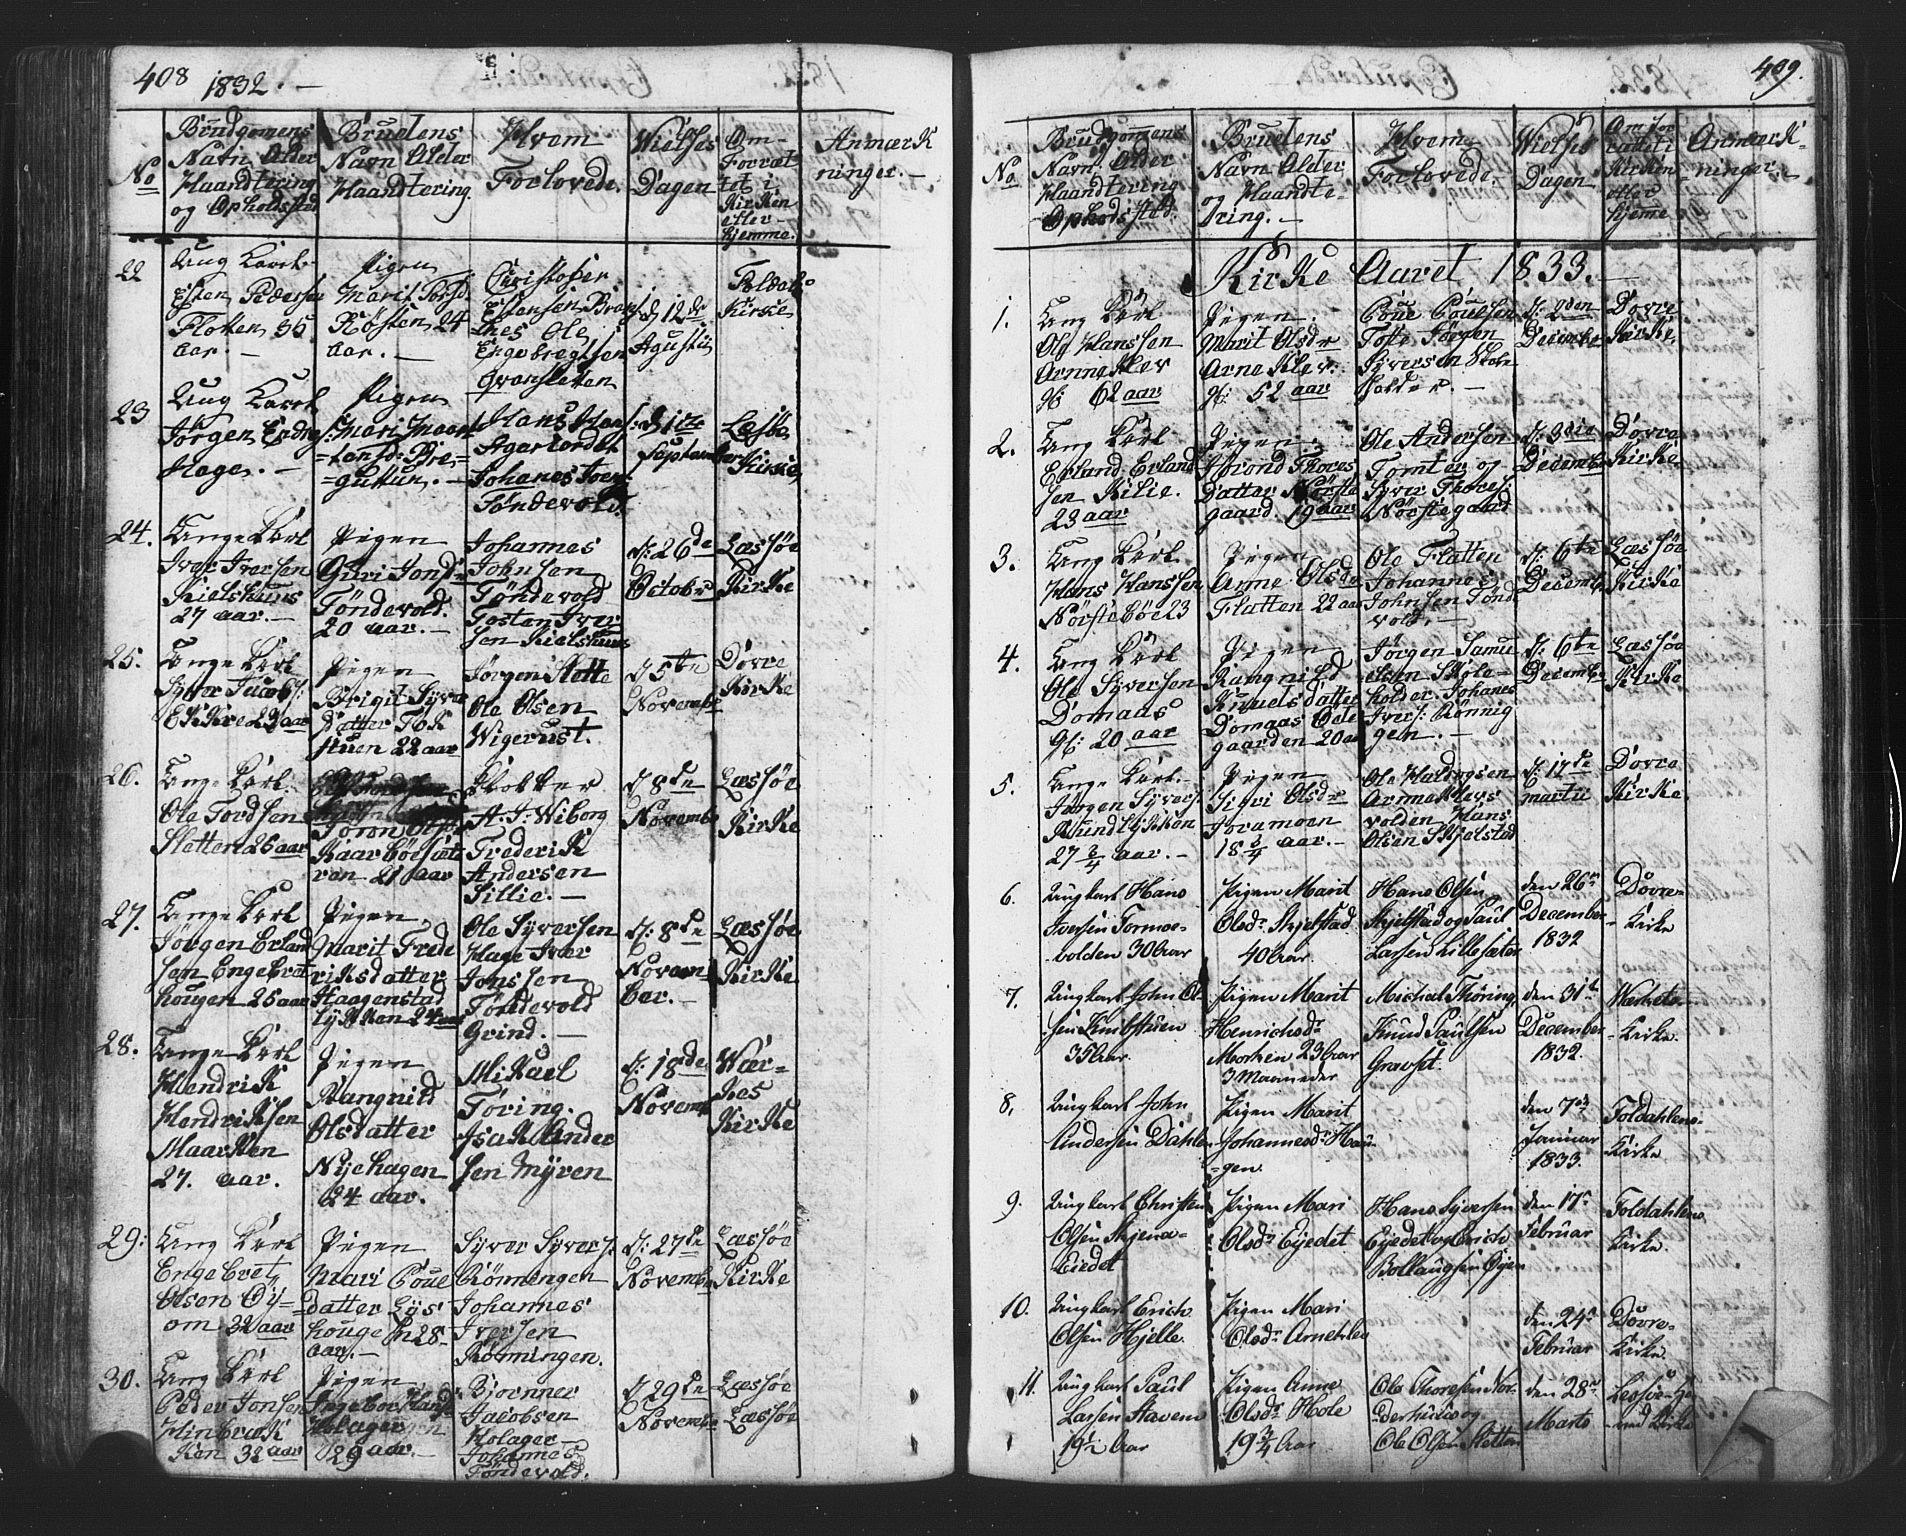 408 1832. —
No
Brudgomens
Navn Alder
Haandtering
og Opholdsted
Brudens
Navn Alder
Haandtering.
Hvem
Forlovede.
Wielses
Dagen
Om
Forret
tet i
Kirken
eller
hjemme.
Anmærk
ninger. —
22
Ung Karl
Esten Pedersen
Flotten 35
aar. —
Pigen
Marit
Kösten 24
aar. —
Christopher
Estensen
Ole
Engebregtsen
d 12de
Agustii
Foldals
Kirke
23
Ung Karl
Jörgen
Hage. —
Pigen
Mari
Hans
Johanes
Töndevold.
d 1te
September
Lesöe
Kirke
24.
Unge Karl
Iver Iversen
Kielshuus
27 aar. —
Pigen
Guri Jonsdr
Töndevold.
20 aar. —
Johannes
Johnsen
Töndevold
Tosten Iver
sen Kielshuus
d: 26de
Octobr
Læssöe
Kirke
25.
Unge Karl
Syver Jacobs:
Ekkre 23 aar
Pigen
Brigit Syver
Datter Tok
stuen 22 aar
Jörgen Slette
Ole Olsen
Wigerust.
d 5te
Novembr
Dovre
Kirke
26.
Unge Karl.
Ole Tordsen
Sletten 26 aar
Joron Olsdr
Kaarböe sæte
ren 21 aar
Klokker
A. J. Wiborg
Frederik
Andersen
Lillie. —
d 8de
Novembr
Læssöe
Kirke
27.
Unge Karl
Jörgen Erland
sen Engebret
hougen 25 aar
Pigen
Marit Frede
riksdatter
Haagenstad
lykken 24 aar
Ole Syversen
Hage Iver
Jonssen
Töndevold
Grind. —
d: 8de
Novem
ber. —
Læssöe
Kirke
28.
Unge Karl
Hendrik
Hendriksen
Maarken
27. aar.
Pigen
Rangnild
Olsdatter
Nyehagen
24 aar.
Mikael
Töring.
Isak Ander
sen Myren
d: 18de
Novemb
Wær-
kes
Kirke
29:
Ung Karl
Engebret
Olsen Öy=
om 32 aar
Pigen
Mari Poul
datter Lys
hougen 28
aar. —
Syver Syvers:
Rönningen
Johannes
Iversen
Rönningen.
d: 27de
Novembr
Læssöe
Kirke
30.
Ung Karl
Peder Jonsen
ken 32 aar
Pigen
Ingebor Hans
Holager
29 aar. —
Bjornner
Jacobsen
Holager
Johannes
Töndevold.
d 29de
Novembr
Læssöe
Læssöe
409.
No
Brudgomens
Navn. Alder
Haandtering
Opholdssted.
Brudens
Navn Alder
og Haandte-
dring. —
Hvem
Forlovede.
Wielses
Dagen
Om for
rettet i
Kirken
eller
hjeme
Anmærk-
ninger
Kirke Aaret 1833. —
1.
Ung Karl
Ole Hanssen
Arneklev
gl: 62 aar
Pigen.
Marit Olsdr
Arneklev:
gl: 52 aar
Poue Poulsen
Tofte Jörgen
Syversen Skole
holder. —
d: 2den
Decembr
Dovre
Kirke
2.
Ung Karl
Erland Erland
sen Kilie.
23 aar
Pigen.
Jorond Thores
Datter Nörste
gaard. 19 aar
Ole Andersen
Tomter og
Syver Thores:
Nörstegaard
d: 3die
Decembr
Dovre
Kirke
3.
Ung Karl.
Hans Hanssen
Nörsteböe 23
Pigen
Anne Olsdr
Flatten 22 aar
Ole Flatten
Johannes
Johnsen Tönd
vold. —
d: 6te
Decembr
Læssöe
Kirke
4.
Ung Karl
Ole Syversen
Domaas
gl: 20 aar
Pigen
Rangnild
Knuds datter
Domaas Öde
gaarden 20 a
Jörgen Samu
elsen Skole=
holder. Johanes
Ivers: Rönnig
gen. —
d: 6te
Decembr
Læssöe
Kirke
5.
Unge Karl.
Jörgen Syvers:
27 3/4 aar. —
Pigen
Sigri Olsdr
Joramoen
18 3/4 aar. —
Ole Haldorsen
Arneklevs
volden Hans
Olsen Skjelstad
d: 17de
martii
Dovre
Kirke
6.
Ungkarl Hans
Iversen Tormoe-
volden 30 Aar
Pigen Marit
Olsdr Skjelstad
40 Aar.
Hans Olsen
Skjelstad og Paul
Larssen Lillesæter
den 26de
December
1832
Dovre-
Kirke
7.
Ungkarl John Ol-
sen Kirkestuen
35 Aar.
Pigen Marit
Henrichsdr
Morken 23 Aar
3 Maaneder
Michal Thöring
Knud Paulsen
Gravset.
den 31te
December
1832.
Værkets-
Kirke
8.
Ungkarl John
Andersen Dahlen
Pigen Marit
Johannesdr Hau-
gen.
den 7de
Januar
1833.
Foldahlens-
Kirke
9.
Ungkarl Christen
Olsen
Eiedet
Pigen Mari
Olsdr Eyedet
Hans Syversen
Eyedet og Erich
Bollaugsen Öyen
den 17de
Februar
Foldahlens
Kirke.
10.
Ungkarl Erich
Olsen Hjelle.
Pigen Mari
Olsdr Arneklev
den 24de
Februar
Dovre-
Kirke.
11.
Ungkarl Paul
Larsen Stavem
19 1/2 Aar
Pigen Anne
Olsdr Hole
19 3/4 Aar
Ole Thoresen Nor-
derhuus og
Ole Olsen Sletten
den 28de
Marts